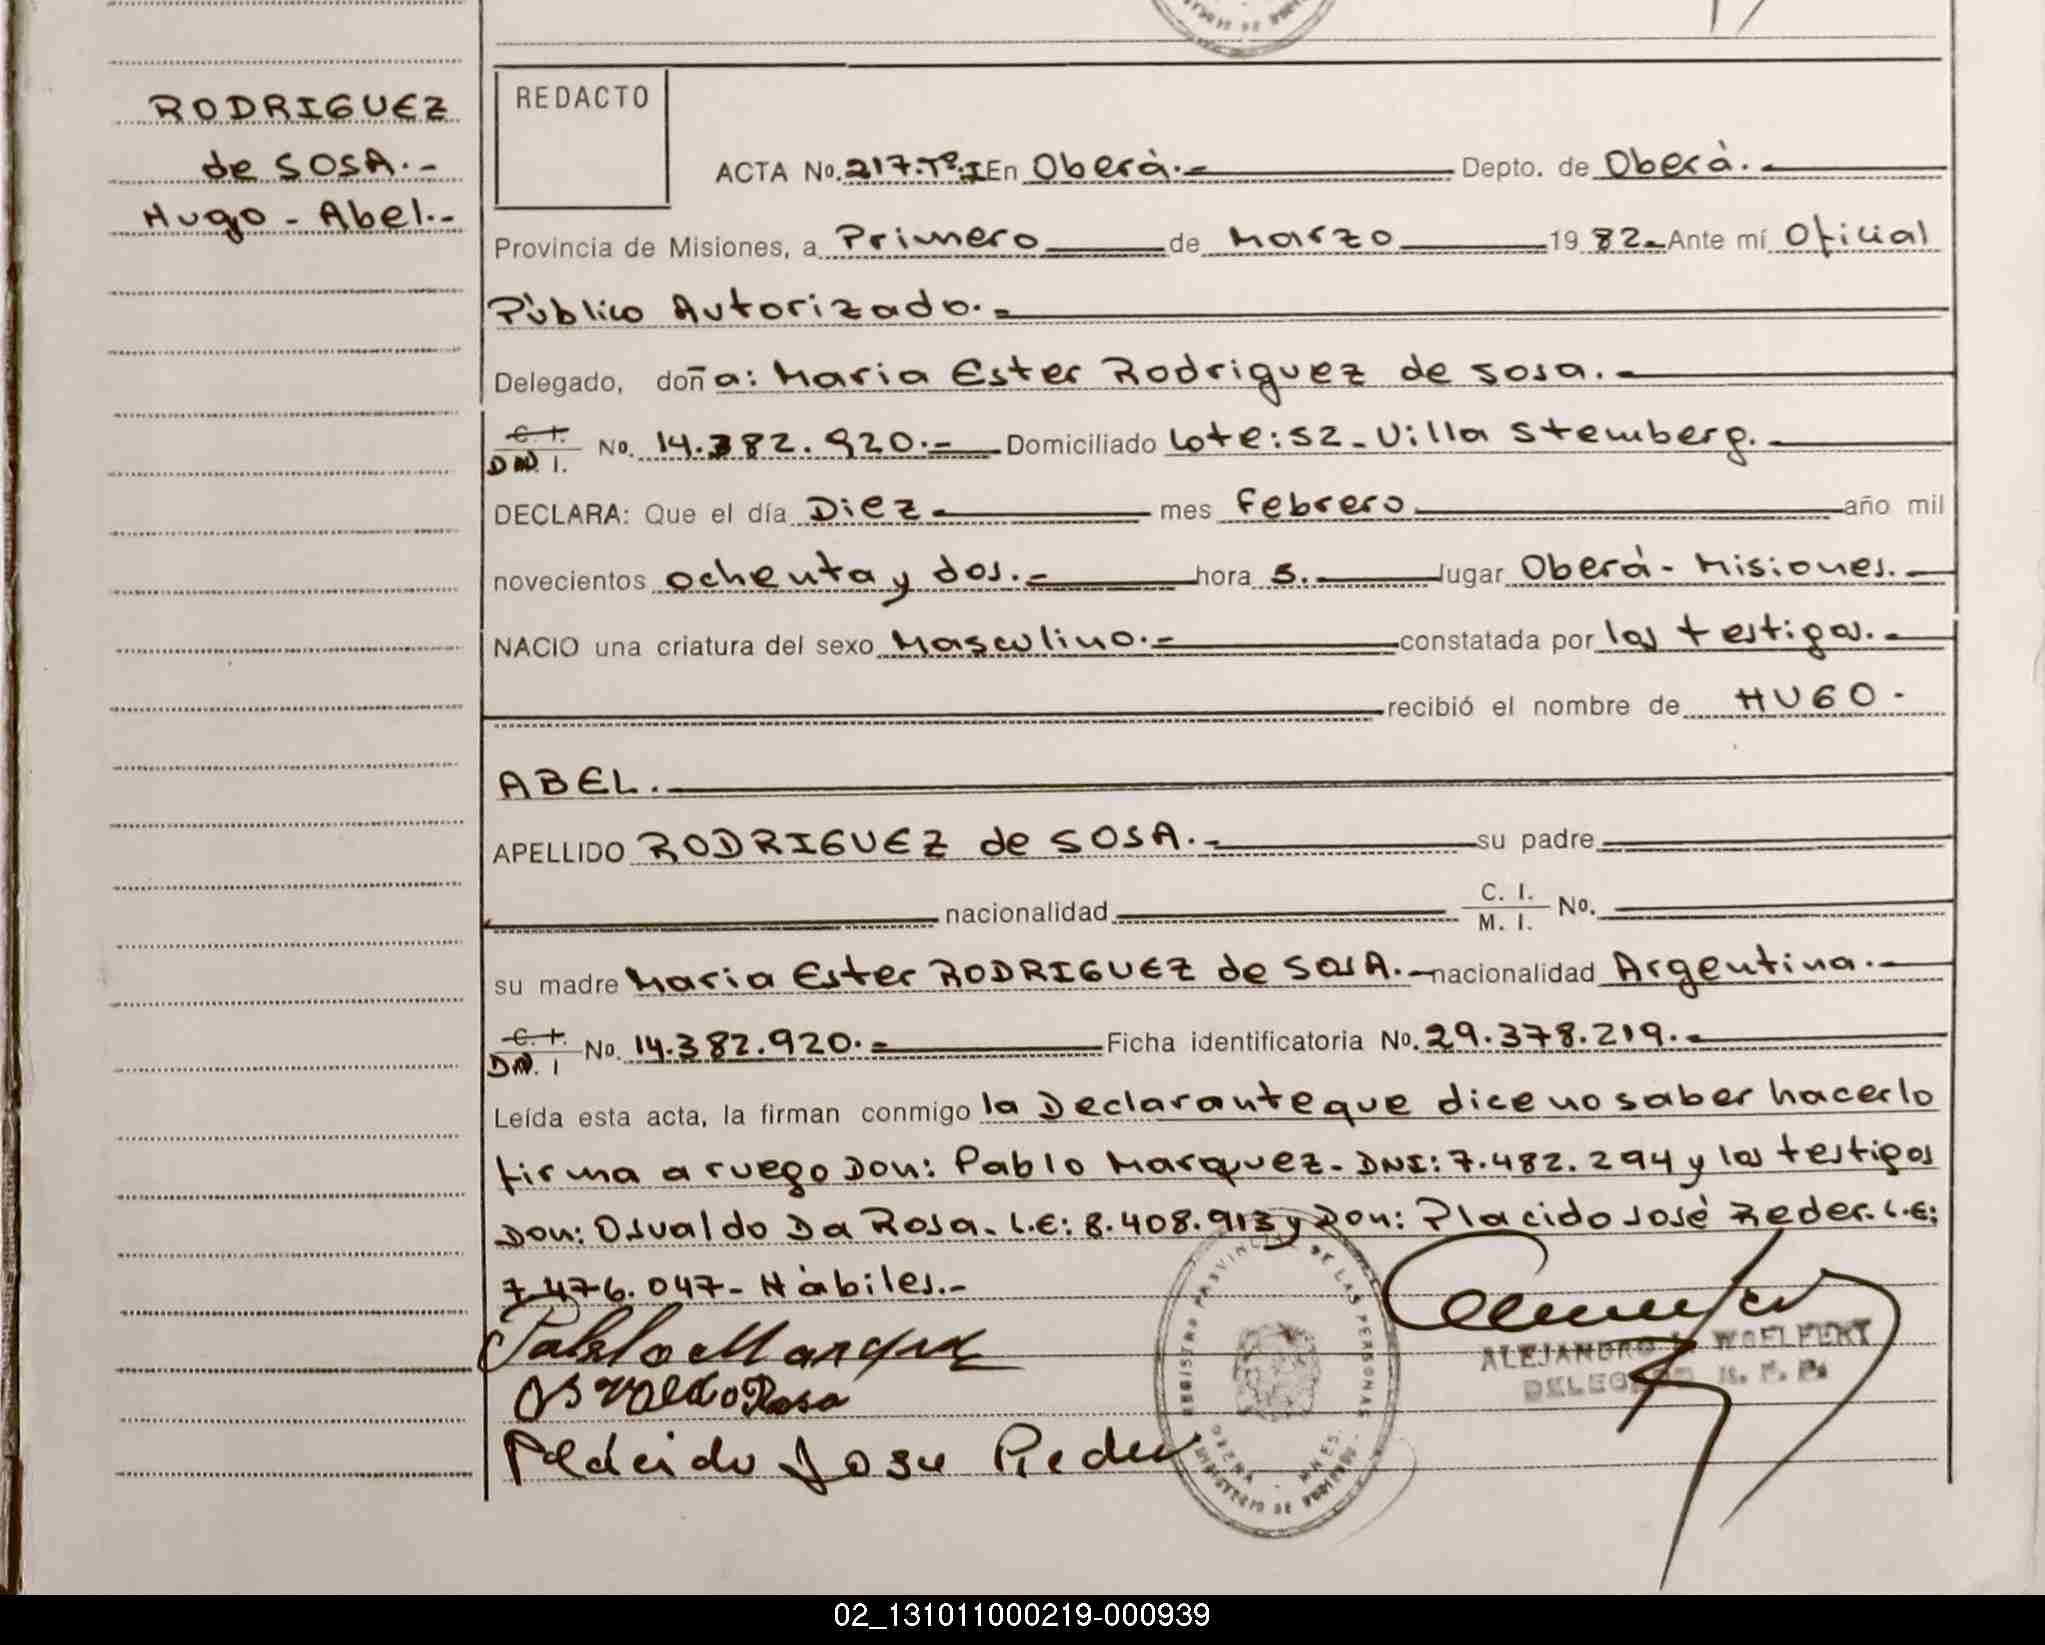 RODRIGUEZ
de SOSA.-
Hugo - Abel.-
REDACTO
ACTA No. 217.Tº.I En Oberà.- Depto. de Oberà.
Provincia de Misiones, a Primero de Marzo 19 82 Ante mí Oficial
Pùblico Autorizado.-
Delegado, doña: Maria Ester Rodriguez de Sosa.-
C. I.
D N. I. No. 14.382.920.- Domiciliado Lote: 52 - Villa Stemberg.-
DECLARA: Que el día Diez mes Febrero año mil
novecientos ochenta y dos.- hora 5. lugar Oberà - Misiones.-
NACIO una criatura del sexo Masculino.- constatada por los testigos.-
recibió el nombre de HUGO -
ABEL.
APELLIDO RODRIGUEZ de SOSA.- su padre
nacionalidad C. I. M. I. No.
su madre Maria Ester RODRIGUEZ de SOSA.- nacionalidad Argentina.-
C. I.
D N. I No. 14.382.920.- Ficha identificatoria No. 29.378.219.-
Leída esta acta, la firman conmigo la Declarante que dice no saber hacerlo
firma a ruego Don: Pablo Marquez - DNI: 7.482.294 y los testigos
Don: Osvaldo Da Rosa - L.E: 8.408.913 y Don: Placido José Reder. L.E:
7.476.047 - Hàbiles.-
Pablo Marquez
Osvaldo Rosa
Placido Jose Reder
REGISTRO PROVINCIAL DE LAS PERSONAS
OBERA - MNES.
MINISTERIO DE GOBIERNO
ALEJANDRO WOELFERT
DELEGADO R. P. P.
02_131011000219-000939